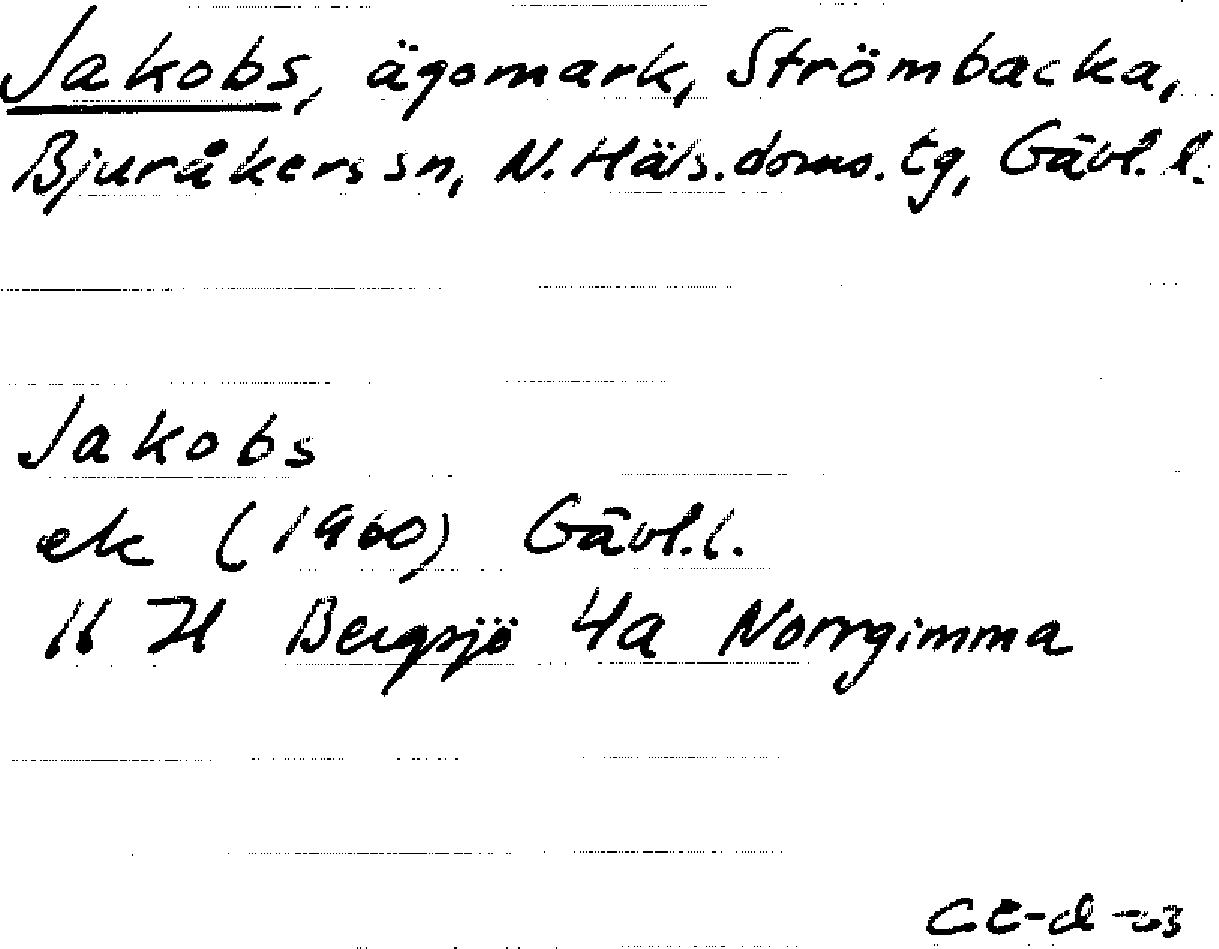 Jakobs, ägomark, Strömbacka,
Bjuråkers sn, N. Häls. doms. tg, Gävl. l.
Jakobs
ek (1960) Gävl. l.
16 H Bergsjö 4a Norrgimma